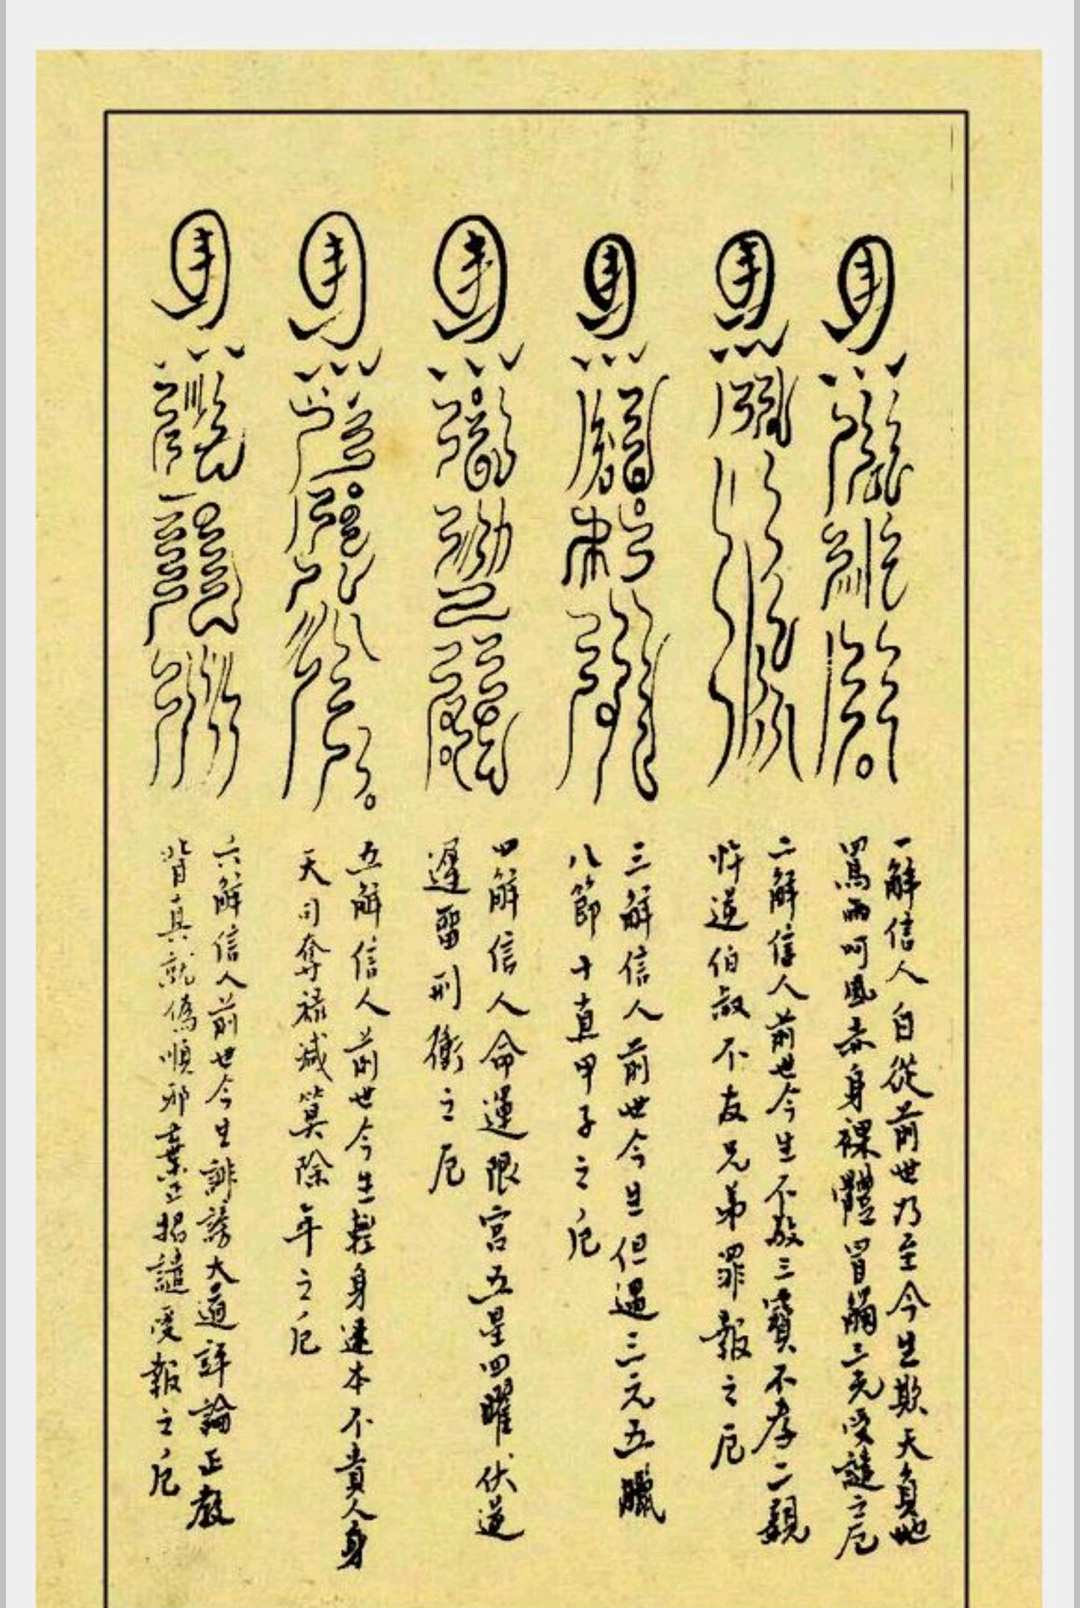 一解信人自從前世乃至今生欺天負地
罵雨呵風赤身裸體冒觸三光受譴之厄
二解信人前世今生不敬三寶不孝二親
忤逆伯叔不友兄弟罪報之厄
三解信人前世今生但過三元五臘
八節十直甲子之厄
四解信人命運限宮五星四曜伏逆
遲留刑衝之厄
五解信人前世今生輕身迷本不貴人身
天司奪祿減算除年之厄
六解信人前世今生誹謗大道評論正教
背真就偽順邪棄正招譴受報之厄